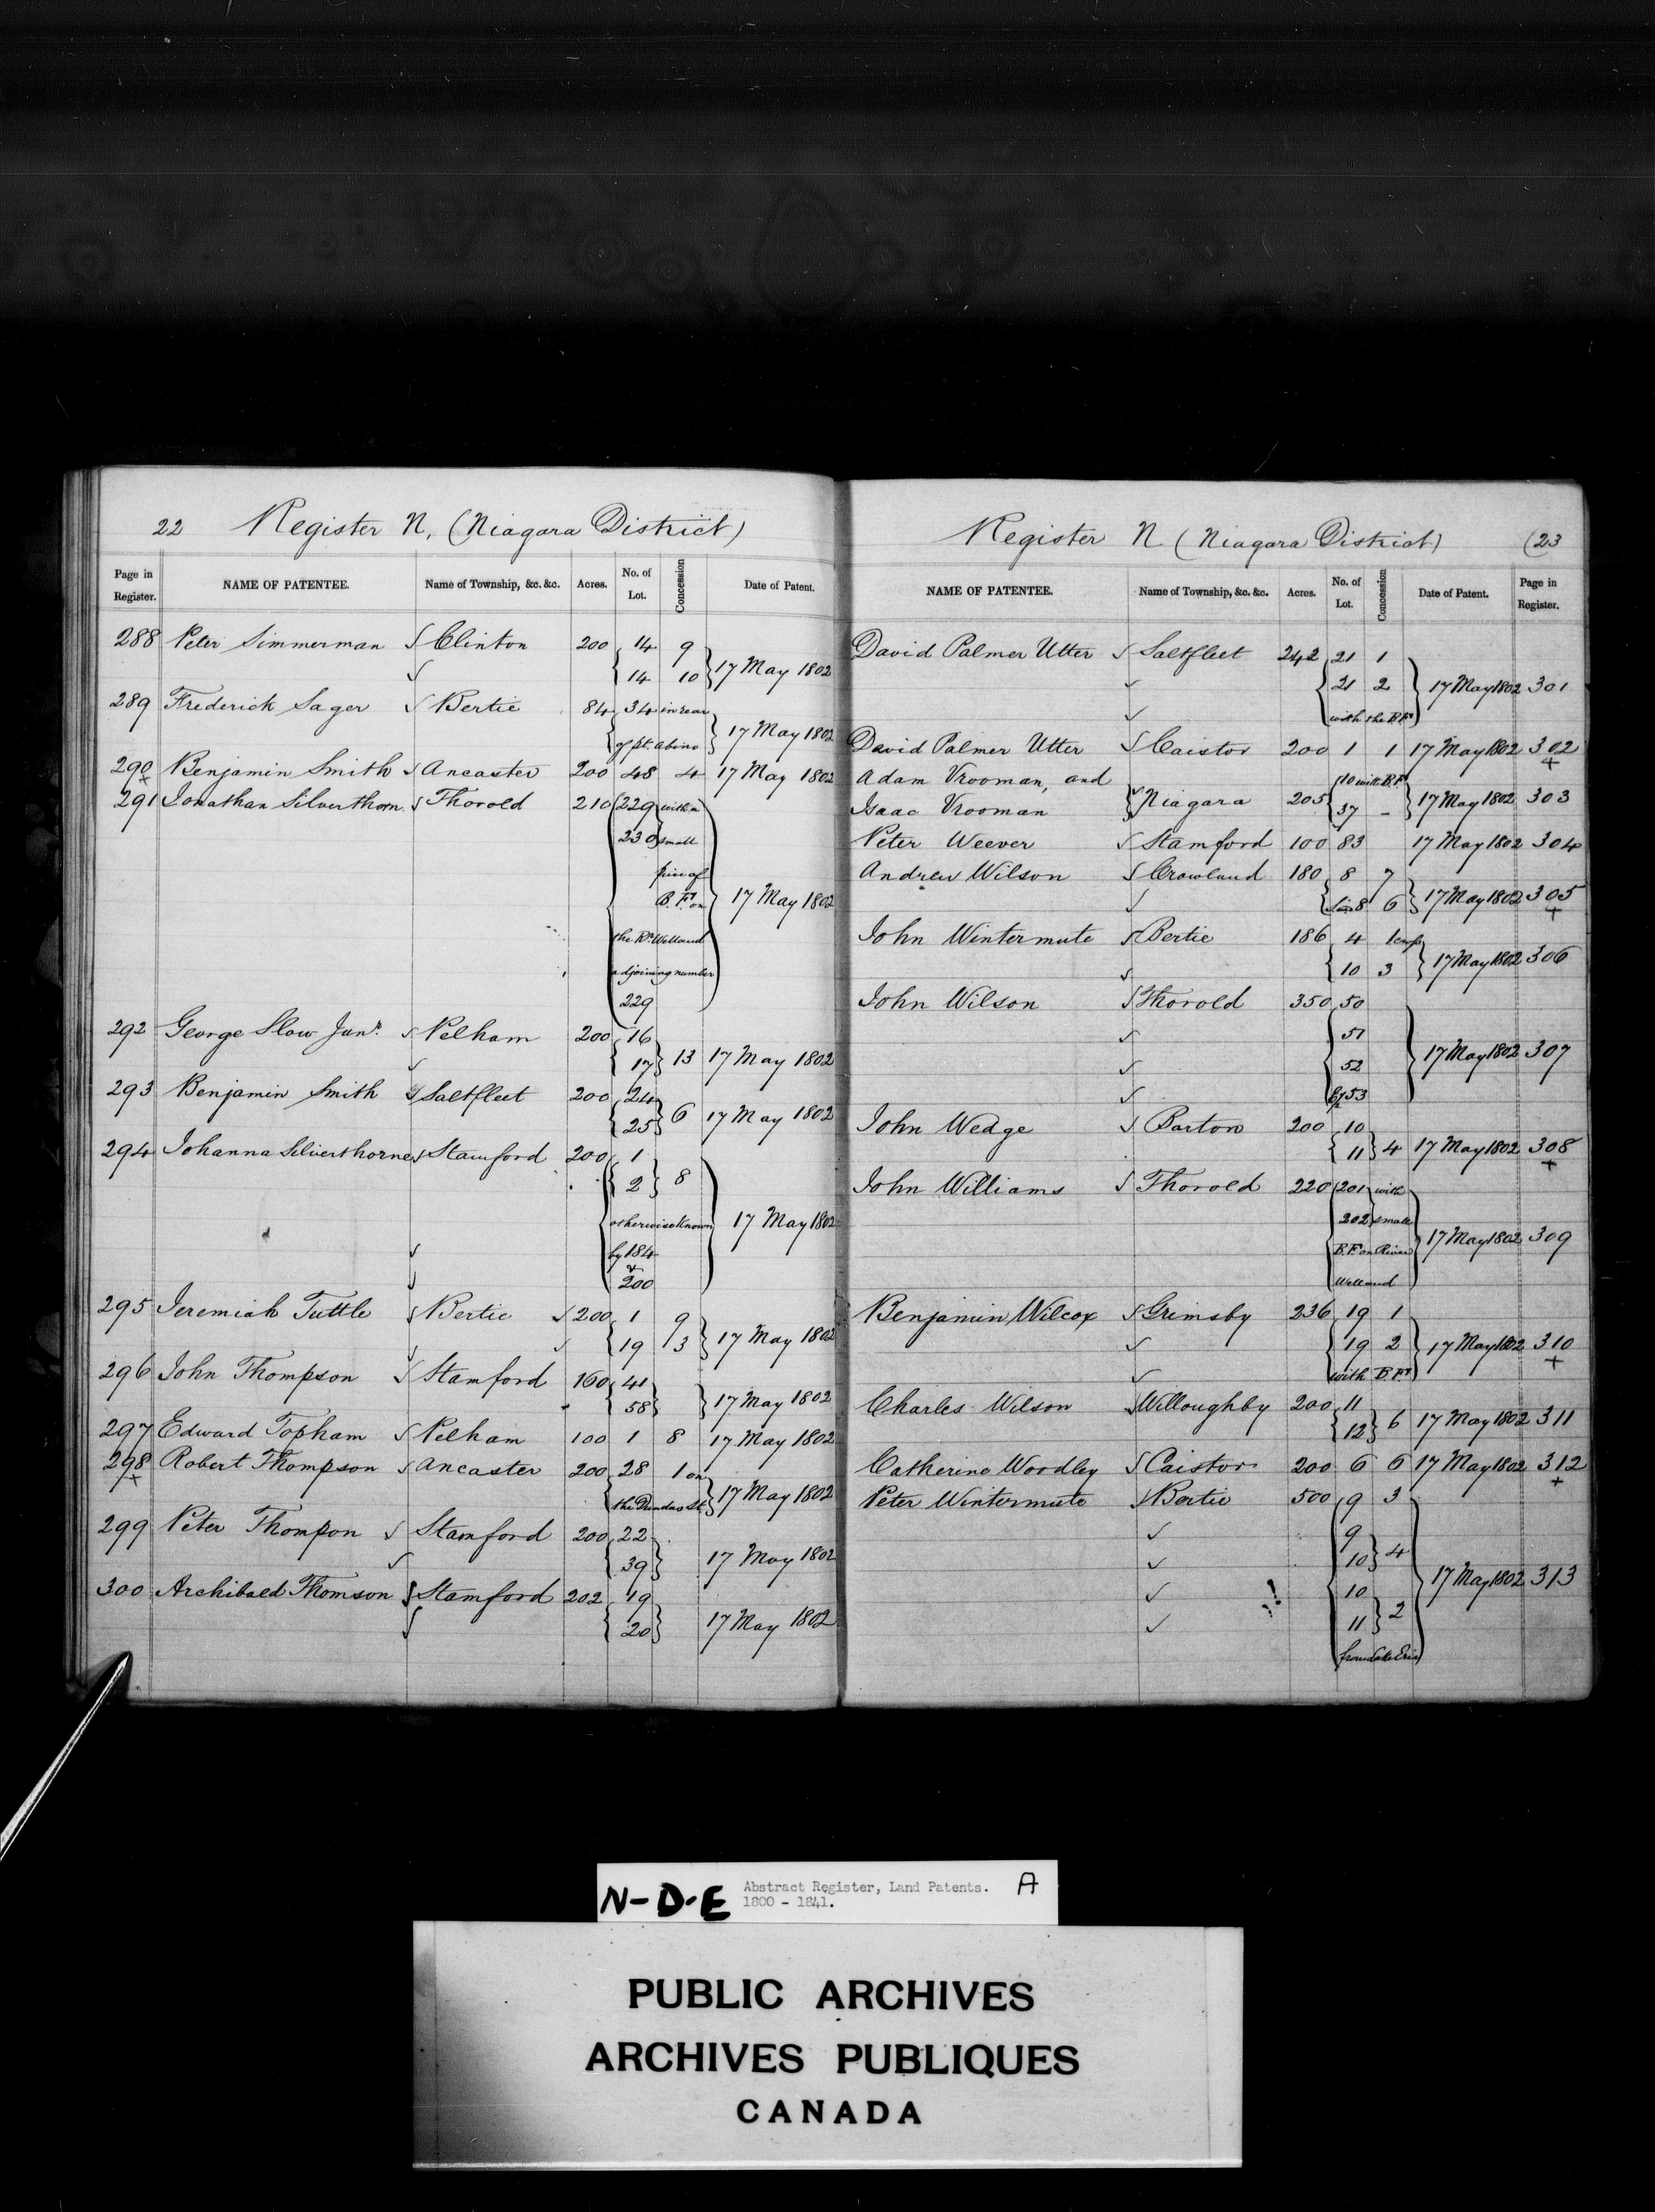 22 Register N, (Niagara District)
Page in Register. NAME OF PATENTEE. Name of Township, &c. &c. Acres. No. of Lot. Concession Date of Patent.
288 Peter Simmerman Clinton 200 14 9
14 10 17 May 1802
289 Frederick Sager Bertie 84 34 in rear
of pt. abino 17 May 1802
290 Benjamin Smith Ancaster 200 48 4 17 May 1802
291 Jonathan Silverthorn Thorold 210 229 with a
230 small
piece of
B. Ft. on 17 May 1802
the Rr. Welland
adjoining number
229
292 George Slow Junr. Pelham 200 16
17 13 17 May 1802
293 Benjamin Smith Saltfleet 200 24
25 6 17 May 1802
294 Johanna Silverthorne Stamford 200 1
2 8
otherwise known 17 May 1802
by 184
&
200
295 Jeremiah Tuttle Bertie 200 1 9
19 3 17 May 1802
296 John Thompson Stamford 160 41
58 17 May 1802
297 Edward Topham Pelham 100 1 8 17 May 1802
298 Robert Thompson Ancaster 200 28 1 on
the Dundas St. 17 May 1802
299 Peter Thompson Stamford 200 22
39 17 May 1802
300 Archibald Thomson Stamford 202 19
20 17 May 1802
Register N (Niagara District) (23
NAME OF PATENTEE. Name of Township, &c. &c. Acres. No. of Lot. Concession Date of Patent. Page in Register.
David Palmer Utter Saltfleet 242 21 1
21 2 17 May 1802 301
with the B. Ft.
David Palmer Utter Caistor 200 1 1 17 May 1802 302
Adam Vrooman, and 10 with B. Ft.
Isaac Vrooman Niagara 205 37 - 17 May 1802 303
Peter Weever Stamford 100 83 17 May 1802 304
Andrew Wilson Crowland 180 8 7
8 6 17 May 1802 305
John Wintermute Bertie 186 4 1
10 3 17 May 1802 306
John Wilson Thorold 350 50
51
52 17 May 1802 307
53
John Wedge Barton 200 10
11 4 17 May 1802 308
John Williams Thorold 220 201 with
202 small
B. Ft. on River 17 May 1802 309
Welland
Benjamin Wilcox Grimsby 236 19 1
19 2 17 May 1802 310
with B. Ft.
Charles Wilson Willoughby 200 11
12 6 17 May 1802 311
Catherine Woodley Caistor 200 6 6 17 May 1802 312
Peter Wintermute Bertie 500 9 3
9
10 4
10 17 May 1802 313
11 2
from Lake Erie
N-D-E Abstract Register, Land Patents. A
1800 - 1841.
PUBLIC ARCHIVES
ARCHIVES PUBLIQUES
CANADA